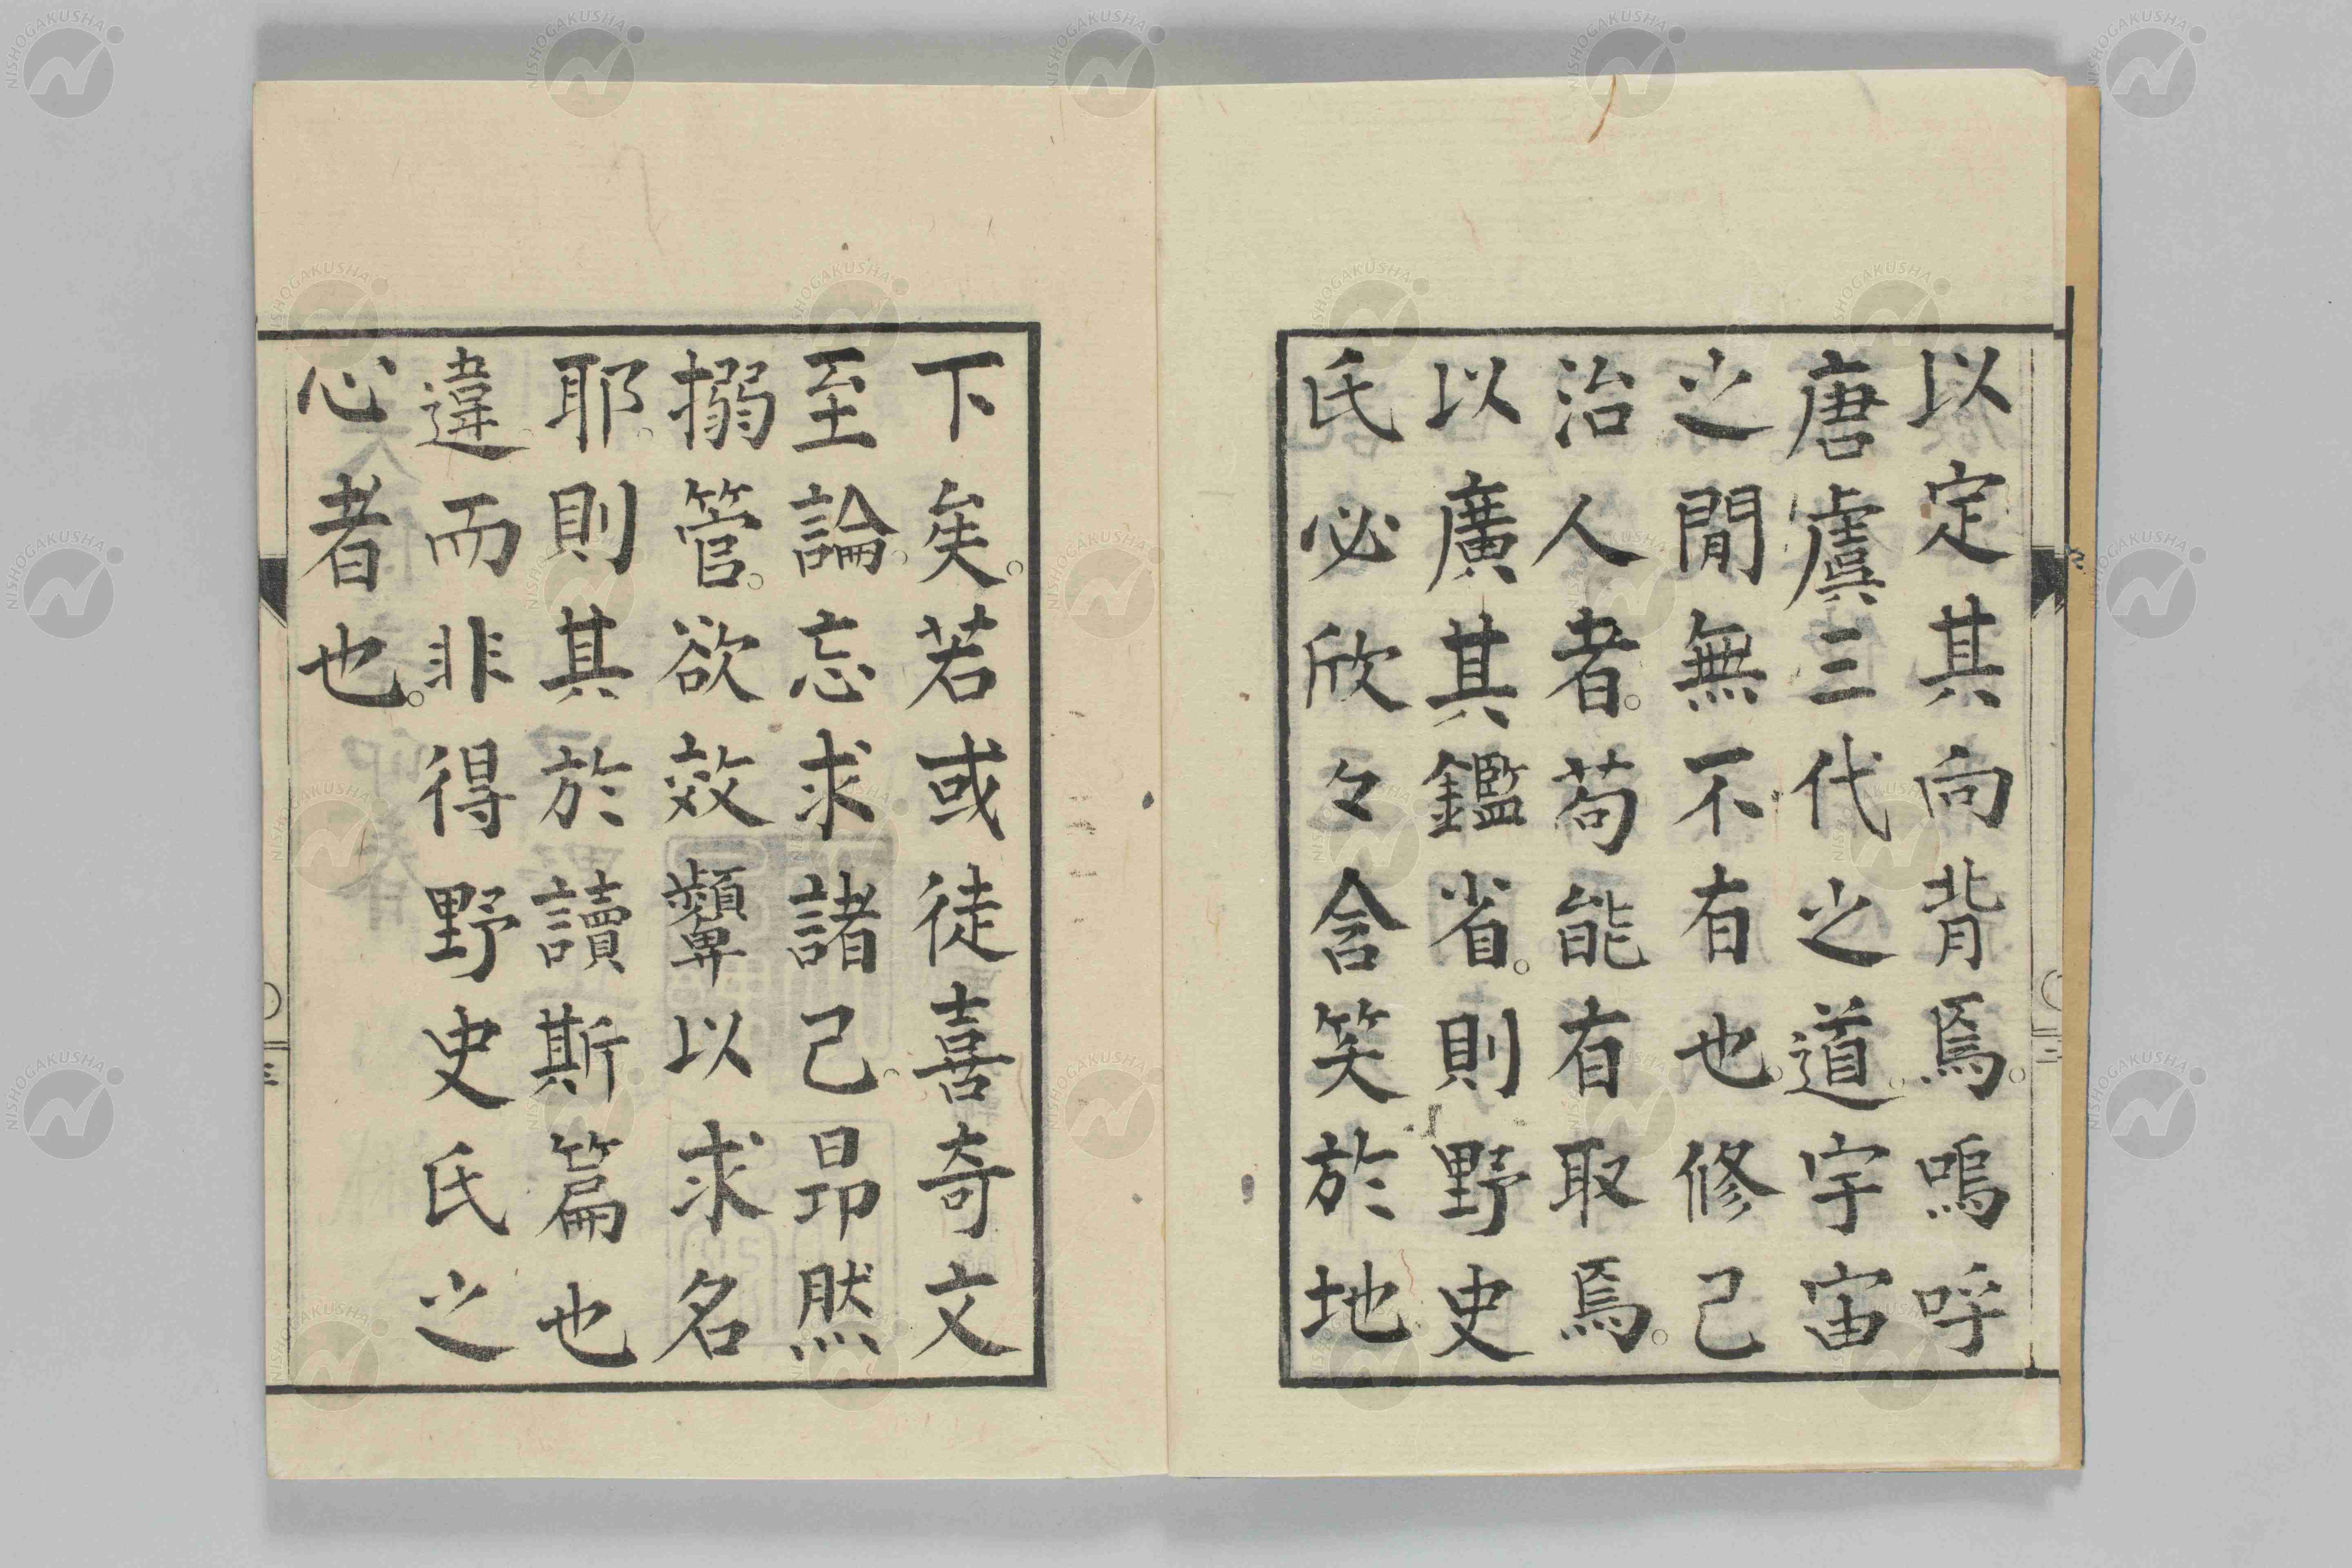 以定其向背焉。嗚呼
唐虞三代之道。宇宙
之閒無不有也。修己
治人者。苟能有取焉。
以廣其鑑省。則野史
氏必欣々含笑於地
下矣。若或徒喜奇文
至論。忘求諸己。昂然
搦管。欲效顰以求名
耶。則其於讀斯篇也
違。而非得野史氏之
心者也。
三
NISHOGAKUSHA